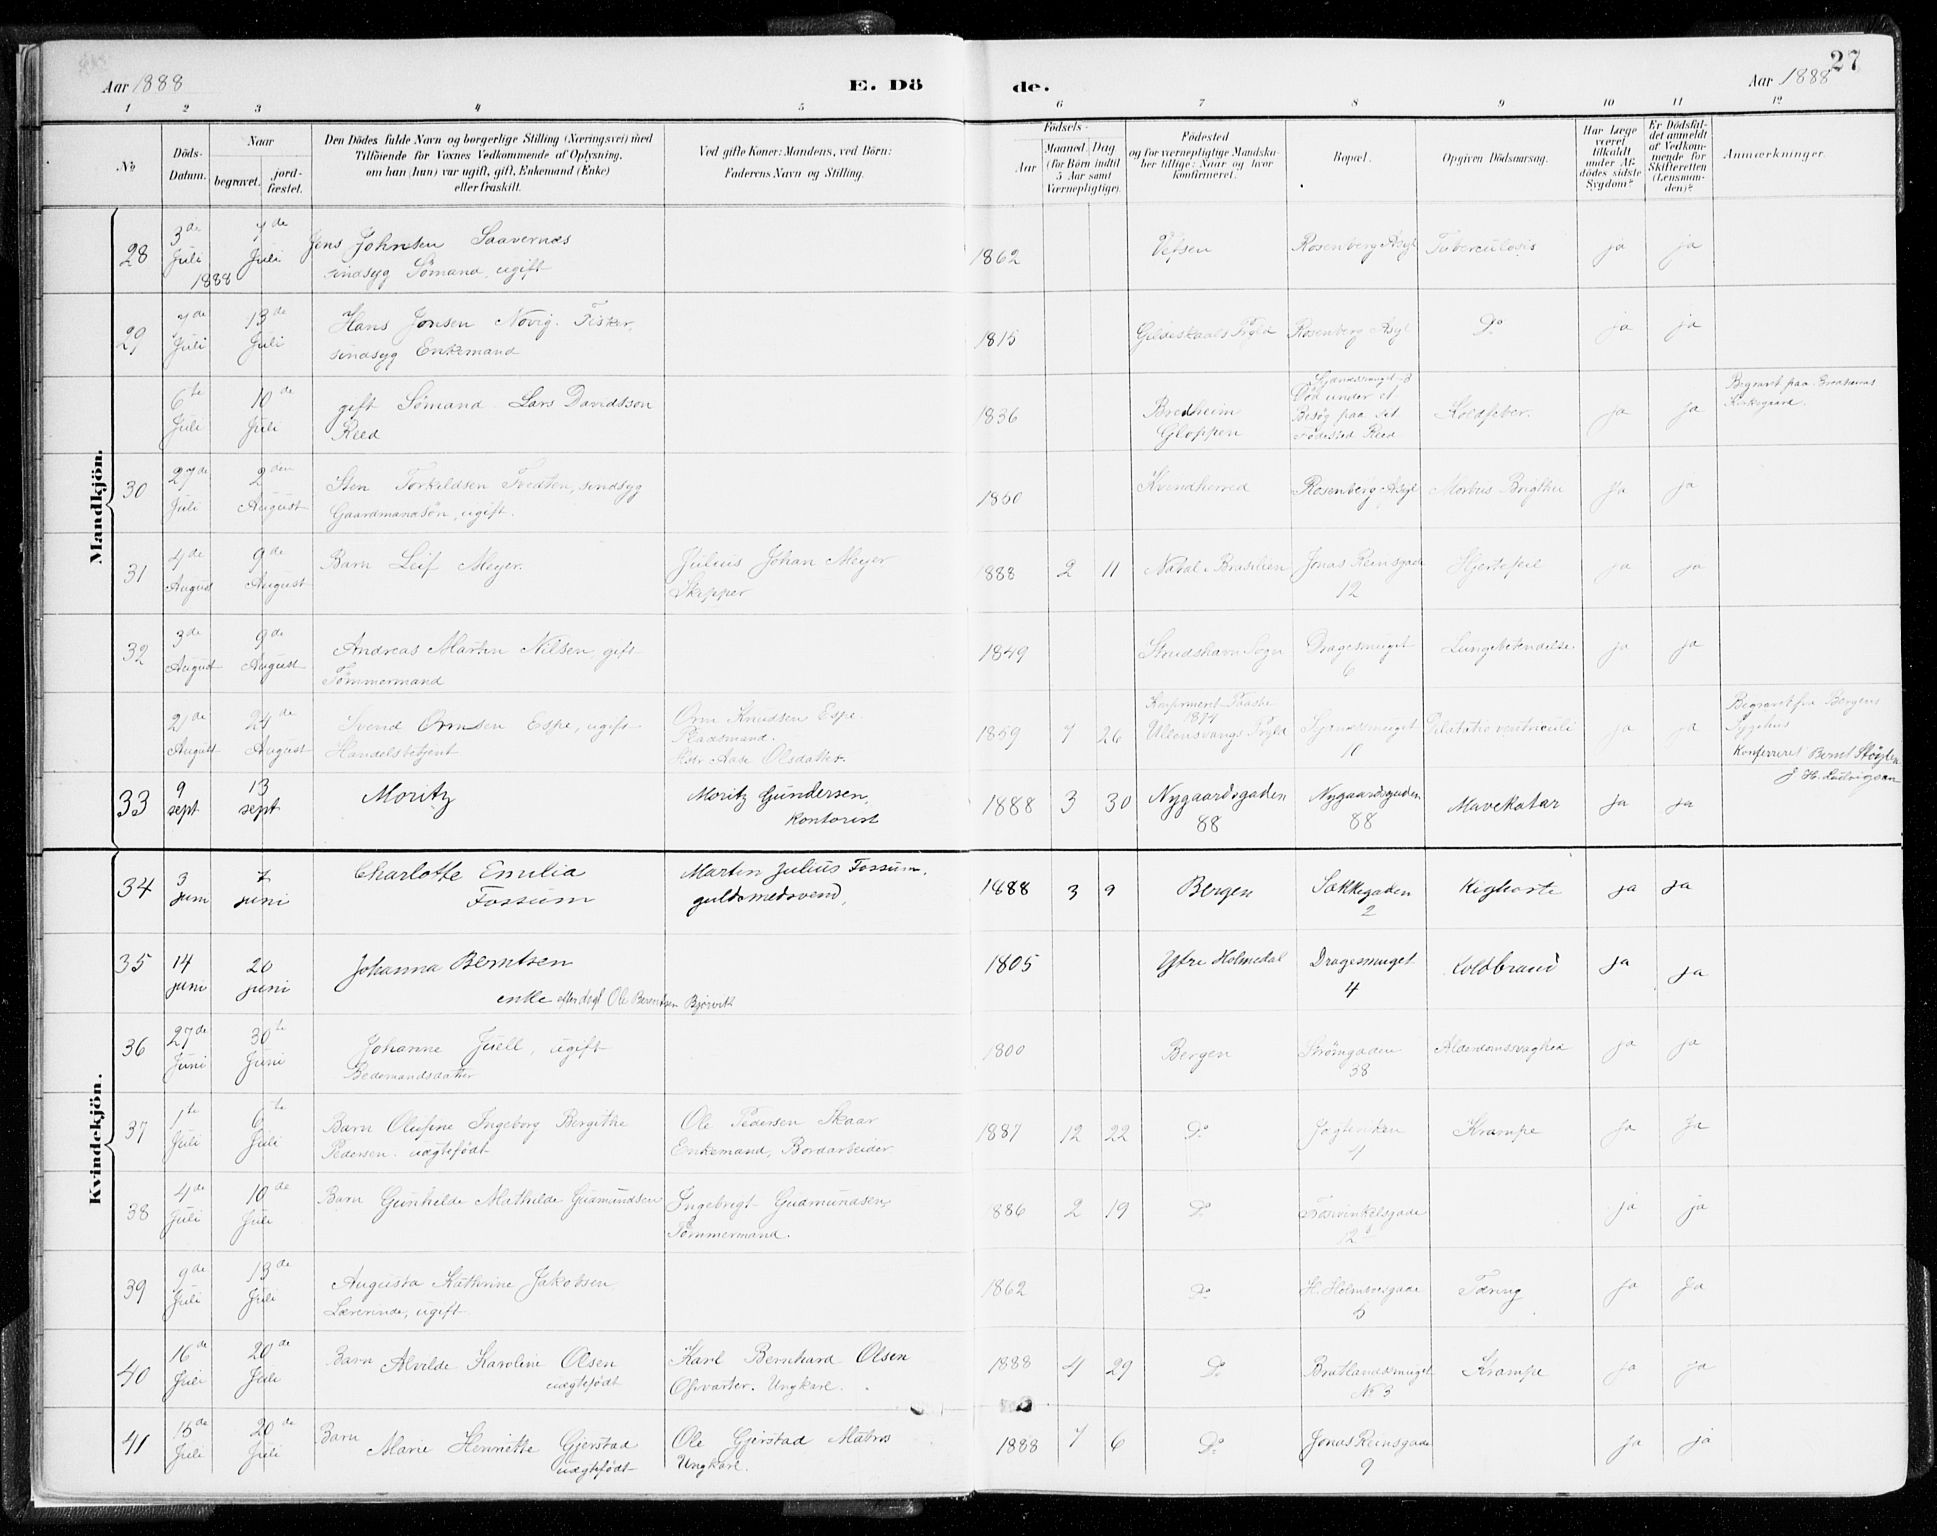 Aar 1888
E. Dö
de.
Aar 1888
27
1 2 3 4 5 6 7 8 9 10 11 12
No
Döds-
Datum.
Naar
begravet.
jord-
fæstet.
Den Dödes fulde Navn og borgerlige Stilling (Næringsvei) med
Tilföiende for Voxnes Vedkommende af Oplysning,
om han (hun) var ugift, gift, Enkemand (Enke)
eller fraskilt.
Ved gifte Koner: Mandens, ved Börn:
Faderens Navn og Stilling.
Födsels-
Aar
Maaned. Dag
(for Börn indtil
5 Aar samt
Værnepligtige).
Födested
og for værnepligtige Mandska-
ber tillige: Naar og hvor
konfirmeret.
Bopæl.
Opgiven Dödsaarsag.
Har Læge
været
tilkaldt
under Af-
dödes sidste
Sygdom?
Er Dödsfal-
det anmeldt
af Vedkom-
mende for
Skifteretten
(Lensman-
den)?
Anmærkninger.
Mandkjön.
28 3de Juli 1888 7de Juli Jens Johnsen Saavernæs
sindsyg Sømand, ugift
1862 Vefsen Rosenberg Asyl Tuberculosis ja ja
29 7de Juli 13de Juli Hans Jonsen Novig. Fisker,
sindsyg Enkemand
1815 Gildeskaals Pgld Rosenberg Asyl Do ja ja
6te Juli 10de Juli gift Sømand Lars Davidsson
Reed
1836 Bredheim
Gloppen
Død under et
Besøg paa sit
Fødested Reed
Koldfeber. ja ja Begravet paa Bredheims
Kirkegaard.
30 27de Juli 2den August Sten Torkildsen Tvedten, sindsyg
Gaardmandsøn, ugift.
1850 Kvindherred Rosenberg Asyl Morbus Brigthii ja ja
31 4de August 9de August Barn Leif Meyer. Julius Johan Meyer
Skipper
1888 2 11 Natal i Brasilien Jonas Reinsgade
12
Hjertefeil ja ja
32 3de August 9de August Andreas Martin Nilsen, gift
Tømmermand
1849 Strudshavn Sogn Dragesmuget
6
Lungebetændelse ja ja
21de August 24de August Svend Ormsen Espe, ugift
Handelsbetjent
Orm Knudsen Espe.
Pladsmand.
Mor Aase Olsdatter.
1859 7 26 Konfirmeret
1874
Ullensvangs Pgld
10
Dilatatio ventriculi ja ja Begravet fra Bergens
Sygehus
Konfereret Bernt Støylen
J. H. Ludvigsen
33 9 sept 13 sept Moritz Moritz Gundersen,
Kontorist
1888 3 30 Nygaardsgaden
88
Nygaardsgaden
88
Mavekatar ja ja
Kvindekjön.
34 3 juni 7 juni Charlotte Emilia
Fossum
Martin Julius Fossum,
guldsmedsvend,
1888 3 9 Bergen Sækkegaden
2
Kighoste ja ja
35 14 juni 20 juni Johanna Berntsen
enke efter dagl Ole Berentsen Bjørvik
1805 Ytre Holmedal Dragesmuget
4
Koldbrand ja ja
36 27de Juni 30te Juni Johanne Juell, ugift
Bedemandsdatter
1800 Bergen Strømgaden
38
Alderdomssvaghed ja ja
37 1te Juli 6te Juli Barn Olufine Ingeborg Bergithe
Pedersen. uægtefødt
Ole Pedersen Skaar
Enkemand, Bordarbeider.
1887 12 22 Do
4
Krampe ja ja
38 4de Juli 10de Juli Barn Gunhilde Mathilde Gudmundsen Ingebregt Gudmundsen,
Tømmermand.
1886 2 19 Do
ja ja
39 9de Juli 13de Juli Augusta Kathrine Jakobsen
Lærerinde, ugift
1862 Do H. Holmboesgade
5
Tæring ja ja
40 16de Juli 20de Juli Barn Alvilde Karoline Olsen
uægtefødt
Karl Bernhard Olsen
Opvarter. Ungkarl.
1888 4 29 Do Bratlandsmuget
No 3
Krampe ja ja
41 15de Juli 20de Juli Barn Marie Henriette Gjerstad
uægtefødt
Ole Gjerstad Matros
Ungkarl.
1888 7 6 Do Jonas Reinsgade
9
ja ja